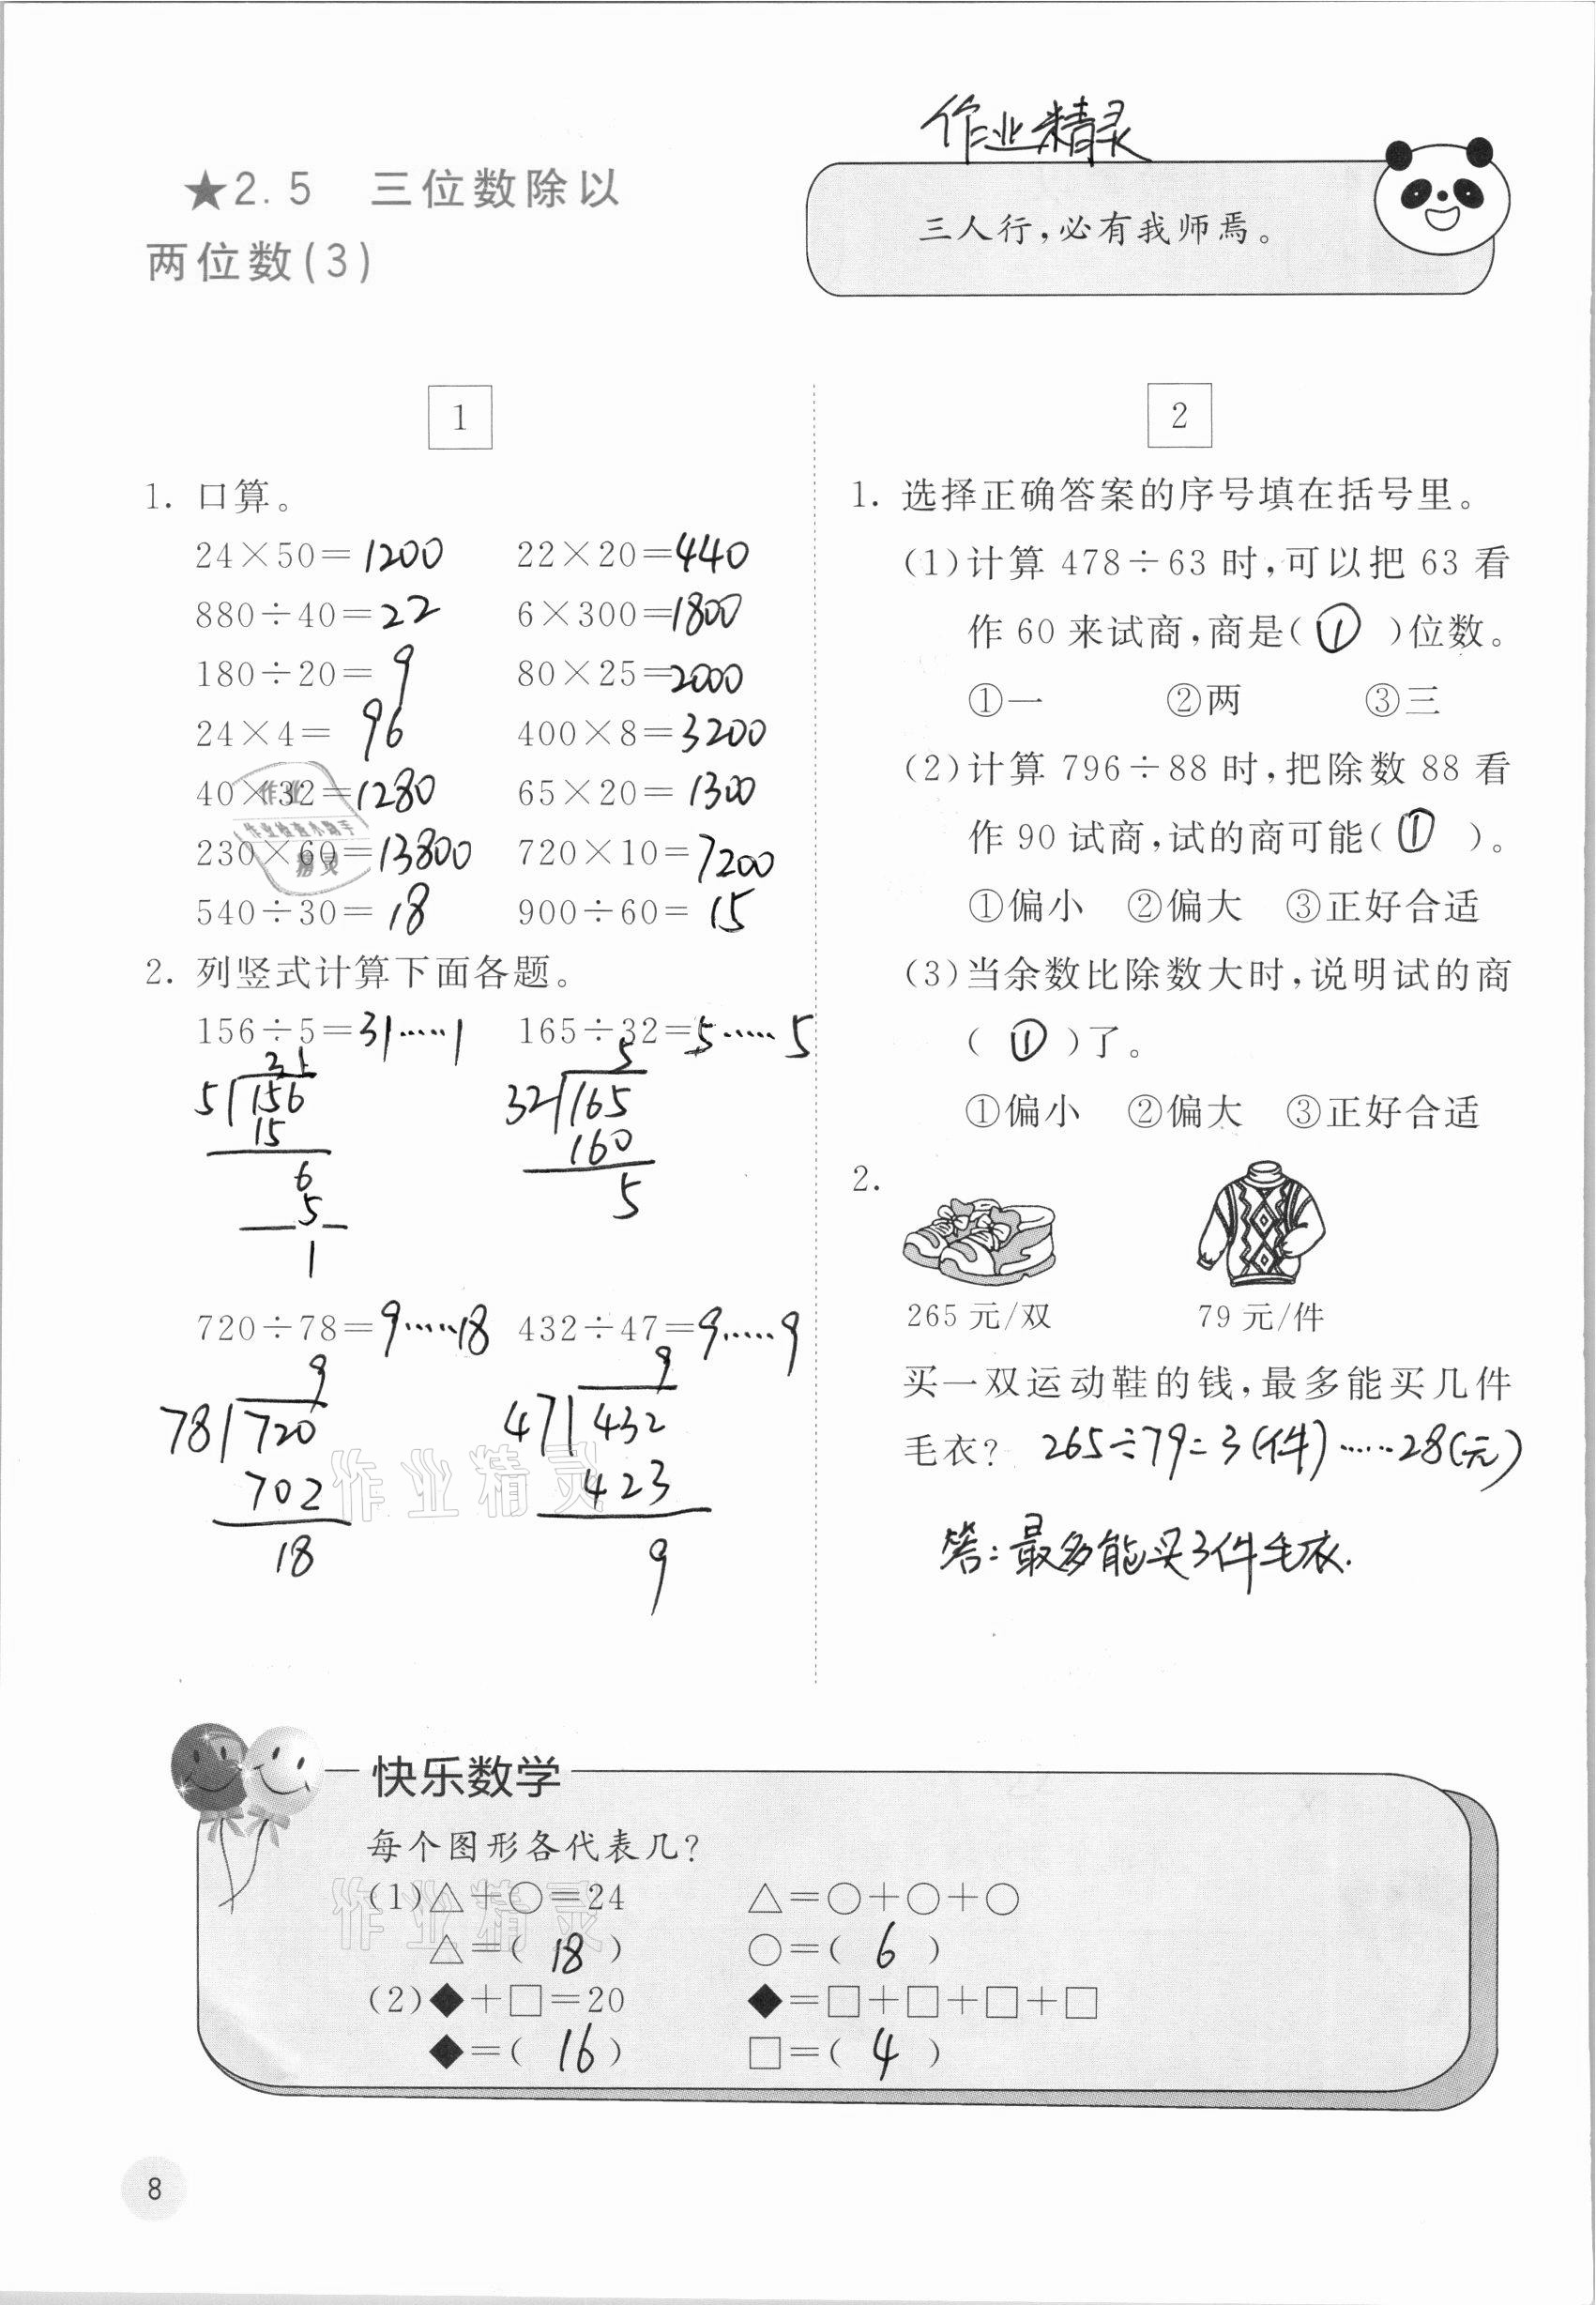 作业精灵
★2.5 三位数除以
两位数(3)
三人行,必有我师焉。
1
1. 口算。
24×50=1200 22×20=440
880÷40=22 6×300=1800
180÷20=9 80×25=2000
24×4=96 400×8=3200
40×32=1280 65×20=1300
230×60=13800 720×10=7200
540÷30=18 900÷60=15
作业
作业检查小助手
精灵
2. 列竖式计算下面各题。
156÷5=31……1 165÷32=5……5
31 5
5 156 32 165
15 160
6 5
5
1
720÷78=9……18 432÷47=9……9
9 9
78 720 47 432
702 423
18 9
作业精灵
2
1. 选择正确答案的序号填在括号里。
(1)计算 478÷63 时,可以把 63 看
作 60 来试商,商是( ① )位数。
①一 ②两 ③三
(2)计算 796÷88 时,把除数 88 看
作 90 试商,试的商可能( ① )。
①偏小 ②偏大 ③正好合适
(3)当余数比除数大时,说明试的商
( ① )了。
①偏小 ②偏大 ③正好合适
2.
265 元/双 79 元/件
买一双运动鞋的钱,最多能买几件
毛衣? 265÷79=3(件)……28(元)
答:最多能买3件毛衣.
快乐数学
每个图形各代表几?
(1)△+○=24 △=○+○+○
△=( 18 ) ○=( 6 )
作业精灵
(2)◆+□=20 ◆=□+□+□+□
◆=( 16 ) □=( 4 )
8